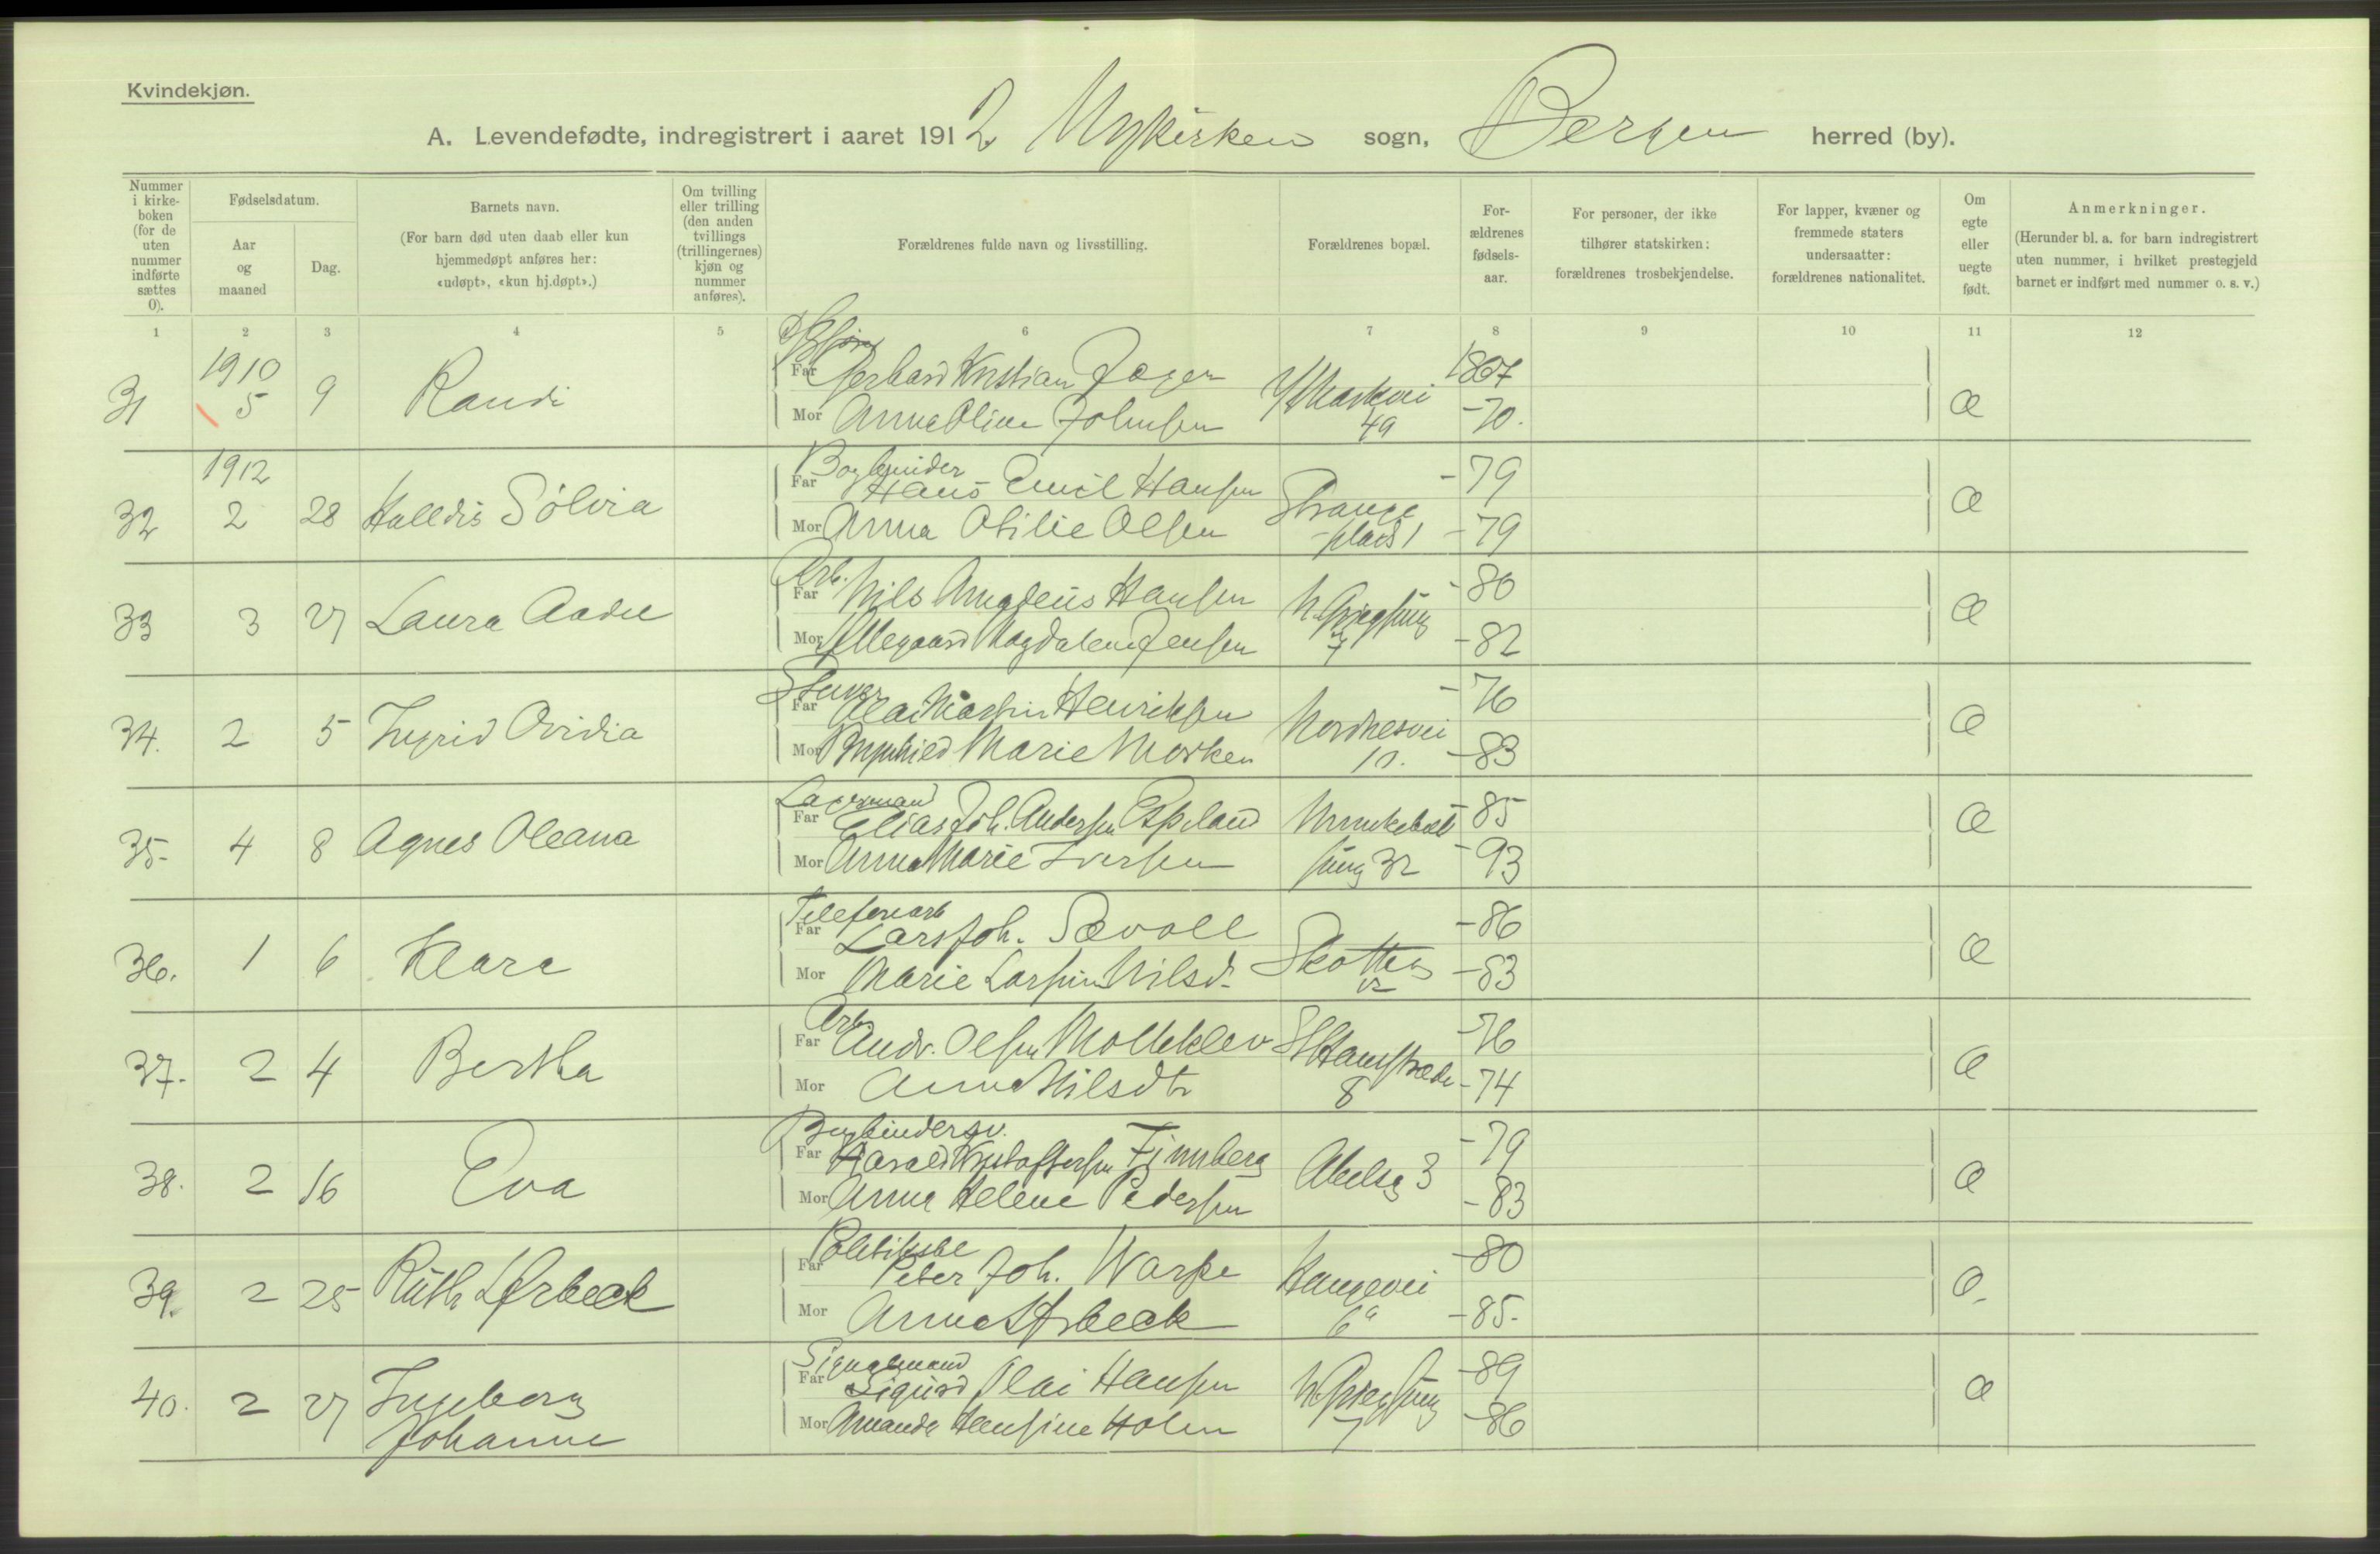 Kvindekjøn.
A. Levendefødte, indregistrert i aaret 1912 Nykirkens sogn, Bergen herred (by).
Nummer i kirke-boken (for de uten nummer indførte sættes 0).
Fødselsdatum.
Aar og maaned
Dag.
Barnets navn.
(For barn død uten daab eller kun hjemmedøpt anføres her: «udøpt», «kun hj.døpt».)
Om tvilling eller trilling (den anden tvillings (trillingernes) kjøn og nummer anføres).
Forældrenes fulde navn og livsstilling.
Forældrenes bopæl.
For-ældrenes fødsels-aar.
For personer, der ikke tilhører statskirken: forældrenes trosbekjendelse.
For lapper, kvæner og fremmede staters undersaatter: forældrenes nationalitet.
Om egte eller uegte født.
Anmerkninger.
(Herunder bl. a. for barn indregistrert uten nummer, i hvilket prestegjeld barnet er indført med nummer o. s. v.)
1 2 3 4 5 6 7 8 9 10 11 12
1910
31 5 9 Randi
Far Gerhard Kristian 1867
Mor Anna Oline Johnsen 49 -70.
Æ
1912
32 2 28 Halldis Sölvia
Bogbinder
Far Hans Emil Hansen Strange -79
Mor Anna Otilie Olsen -plads 1 -79
Æ
33 3 27 Laura
Arb.
Far Nils Amadeus Hansen N. Griegsmug -80
Mor Magdalene Jensen 7 -82
Æ
34. 2 5 Ingrid Ovidia
Far Olai Martin Henriksen Nordnesvei -76
Mor Marie Morken 10. -83
Æ
35. 4 8 Agnes Oleana
Lagermand
Far Elias Joh. Andersen Espeland Munkebott -85
Mor Anna Marie Iversen smug 32 -93
Æ
36. 1 6 Klara
Telefonarb
Far Lars Joh. Sævoll -86
Mor Marie Larsine Nilsd. Skotteg 12 -83
Æ
37. 2 4 Bertha
Arb
Far Andr. Olsen Molleklev St Hansstræde -76
Mor Anna Nilsdtr 8 -74
Æ
38. 2 16 Eva
Bogbindersv.
Far Harald Kristoffersen Finnberg Abelsg 3 -79
Mor Anna Helene Pedersen -83
Æ
39. 2 25 Ruth Lørbeck
Politikstbl
Far Peter Joh. Warpe Haugevei -80
Mor Anna Lørbeck 6a -85.
Æ
40. 2 27 Ingeborg
Johanne
Signalmand
Far Sigurd Olai Hansen N. Griegsmug -89
Mor Amanda Hansine Holm 7 -86
Æ